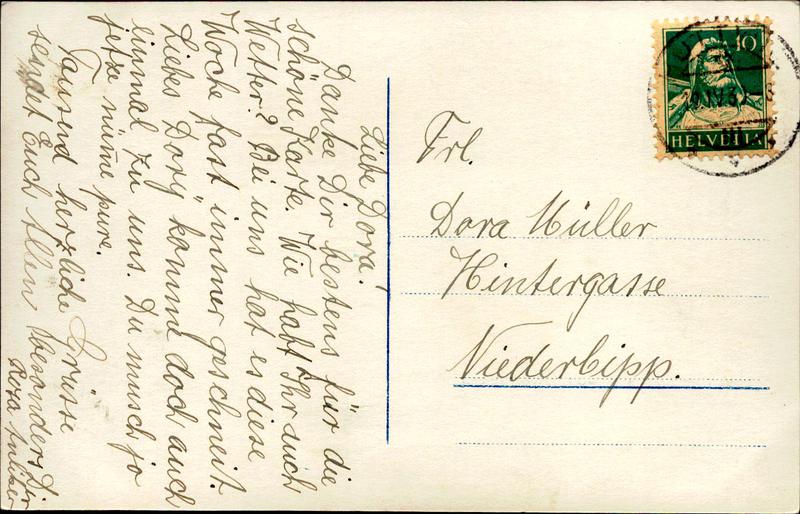 Liebe Dora!
Danke Dir bestens für die
schöne Karte. Wie habt Ihr auch
Wetter? Bei uns hat es diese
Woche fast immer geschneit.
Liebes Dory, komme doch auch
einmal zu uns. Du musch jo
jetze nüme pure.
Tausend herzliche Grüsse
sendet Euch Allen besonders Dir
Rosa
Frl.
Dora Müller
Hintergasse
Niederbipp.
10
HELVETIA